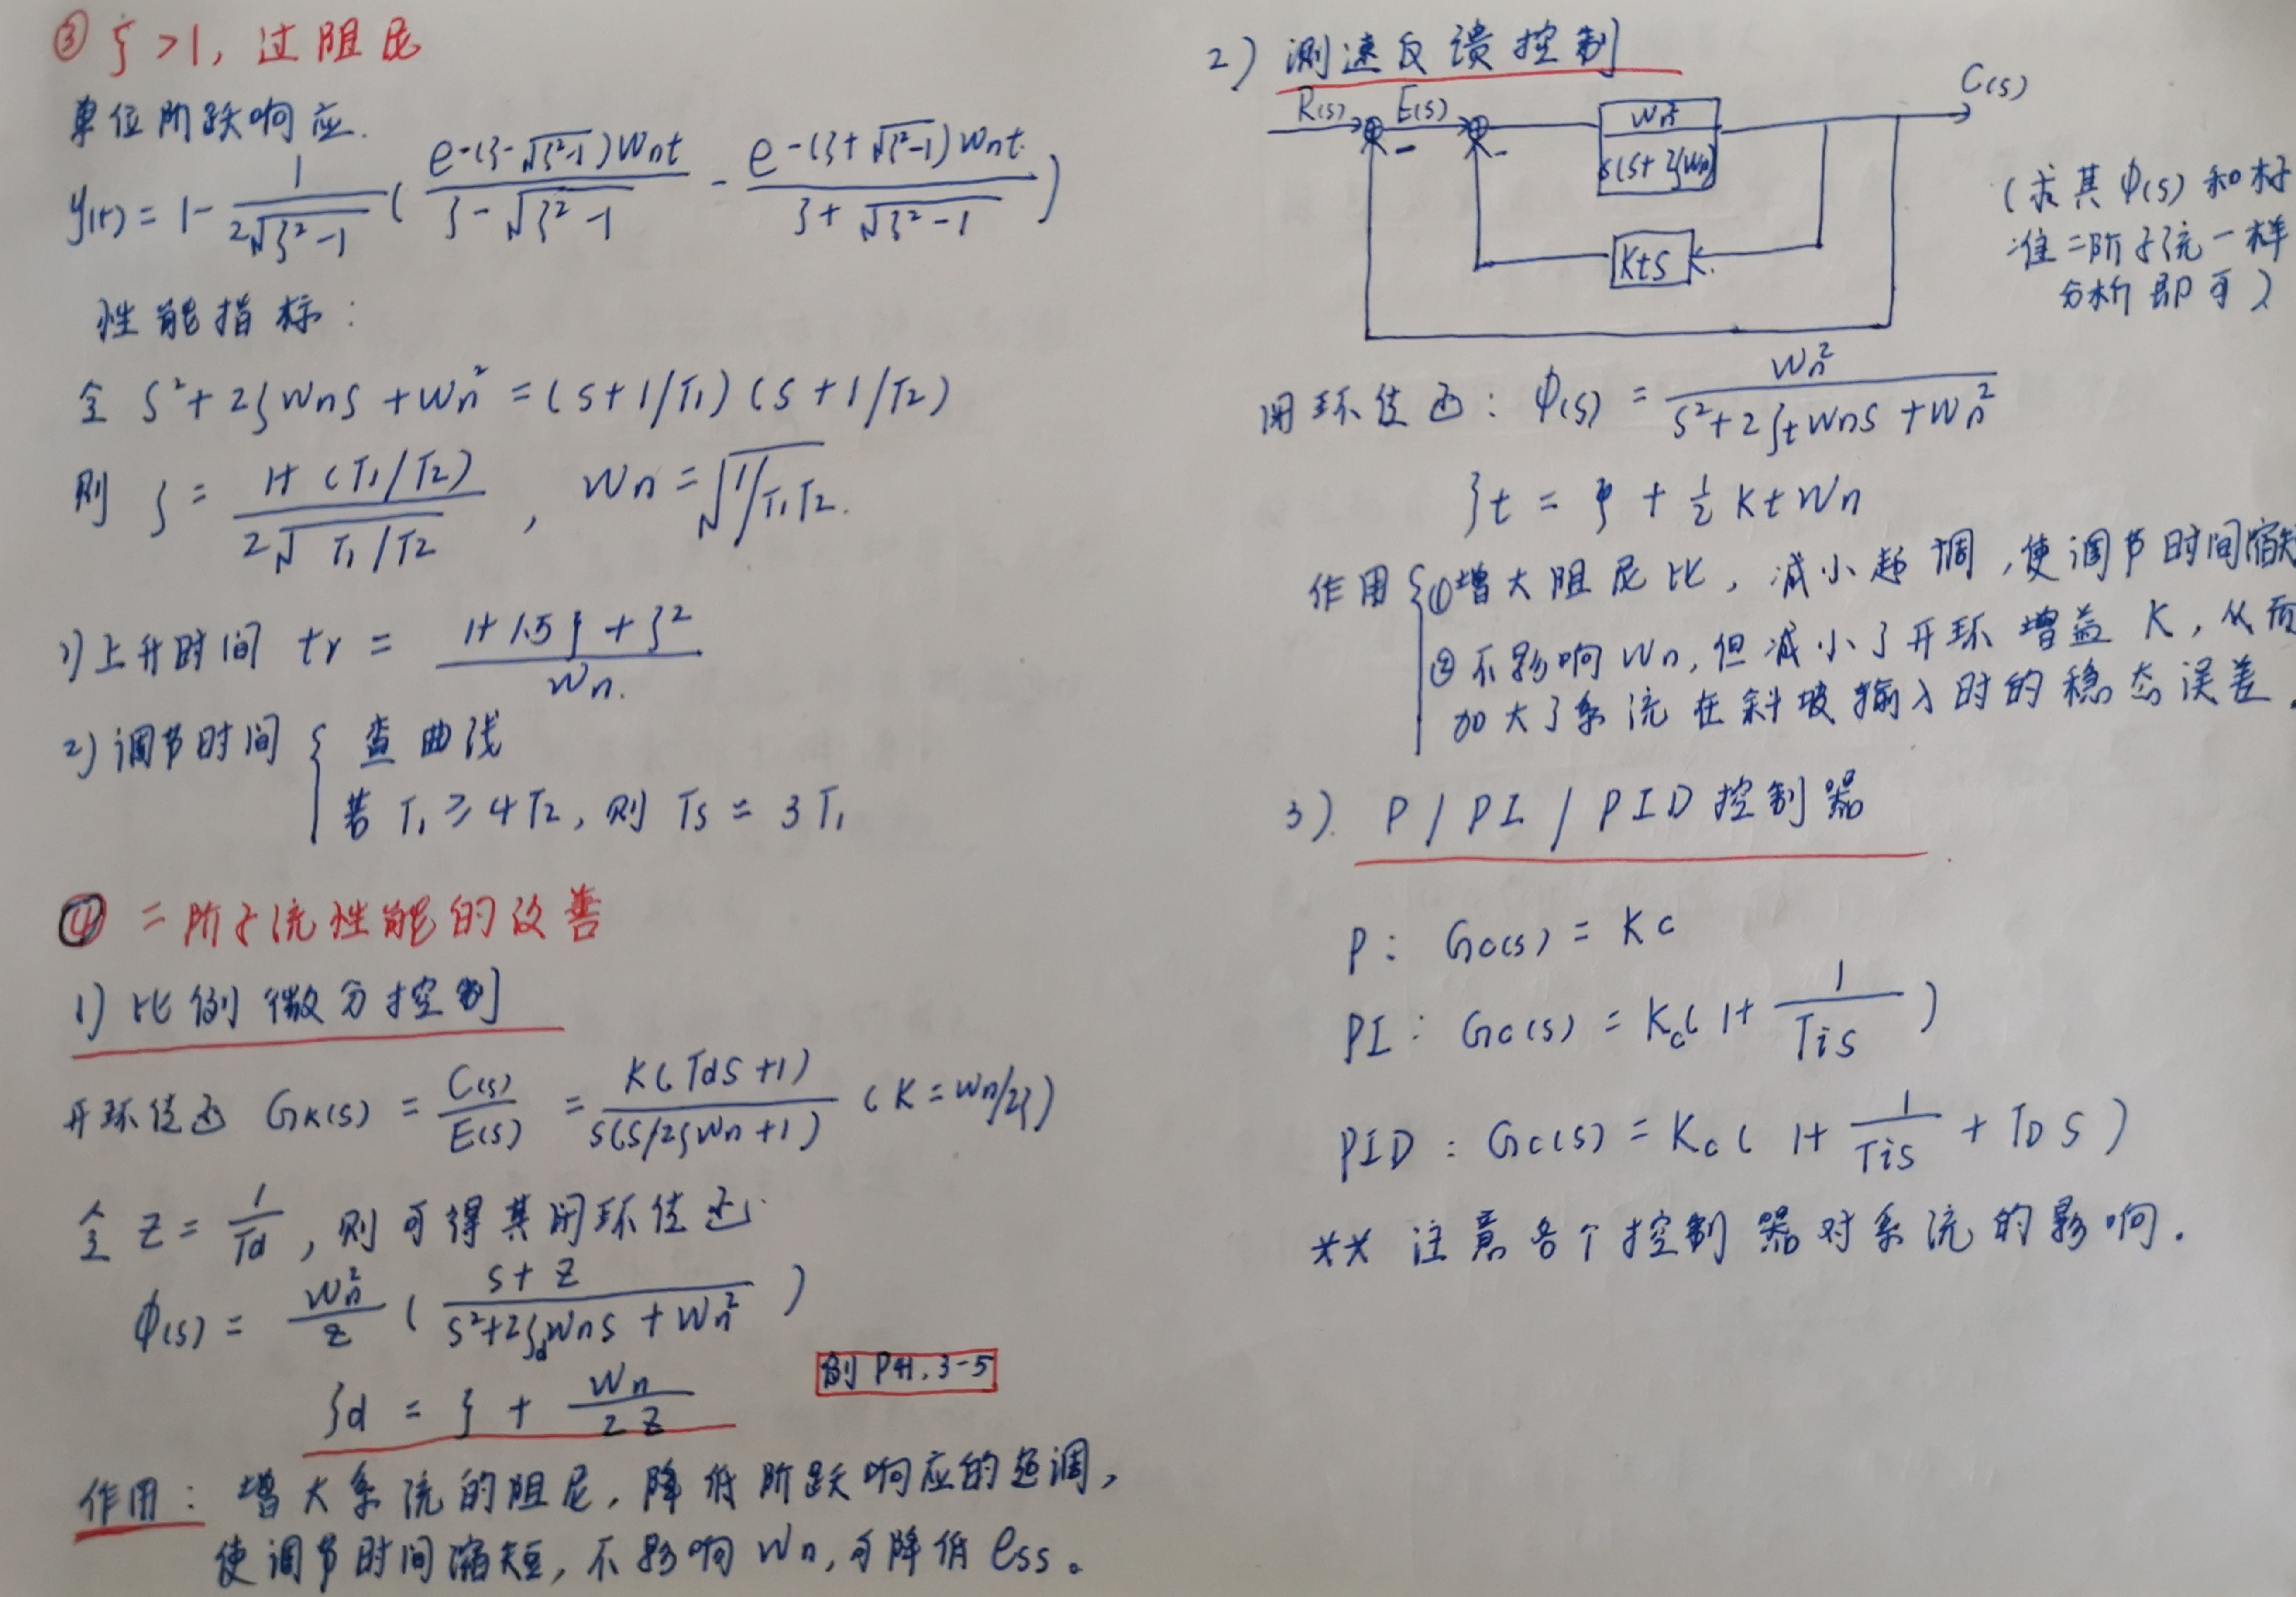 ③ ζ>1, 过阻尼
单位阶跃响应.
y(t) = 1 - 1/(2√(ζ²-1)) ( e^-(ζ-√(ζ²-1))Wnt / (ζ-√(ζ²-1)) - e^-(ζ+√(ζ²-1))Wnt / (ζ+√(ζ²-1)) )
性能指标:
令 S²+2ζWnS+Wn² = (S+1/T1)(S+1/T2)
则 ζ = (1+(T1/T2)) / (2√(T1/T2)) , Wn = √(1/T1T2).
1) 上升时间 tr = (1+1.5ζ+ζ²) / Wn.
2) 调节时间 { 查曲线
若 T1 ≥ 4T2, 则 Ts = 3T1
④ 二阶系统性能的改善
1) 比例微分控制
开环传函 GK(s) = C(s)/E(s) = K(TdS+1) / S(S/2ζWn+1) (K=Wn/2ζ)
令 Z = 1/Td , 则可得其闭环传函.
Φ(s) = Wn²/Z ( (S+Z) / (S²+2ζdWnS+Wn²) )
例 P41. 3-5
ζd = ζ + Wn/2Z
作用: 增大系统的阻尼, 降低阶跃响应的超调,
使调节时间缩短, 不影响 Wn, 可降低 ess。
2) 测速反馈控制
R(s) E(s) Wn² / S(S+2ζWn) C(s)
- -
KtS
(求其Φ(s)和标
准二阶系统一样
分析即可)
闭环传函: Φ(s) = Wn² / (S²+2ζtWnS+Wn²)
ζt = ζ + ½ KtWn
作用 { ①增大阻尼比, 减小超调, 使调节时间缩短
②不影响Wn, 但减小了开环增益 K, 从而
加大了系统在斜坡输入时的稳态误差.
3). P / PI / PID 控制器
P: Gc(s) = Kc
PI: Gc(s) = Kc( 1+ 1/TiS )
PID: Gc(s) = Kc( 1+ 1/TiS + TDS )
** 注意各个控制器对系统的影响.